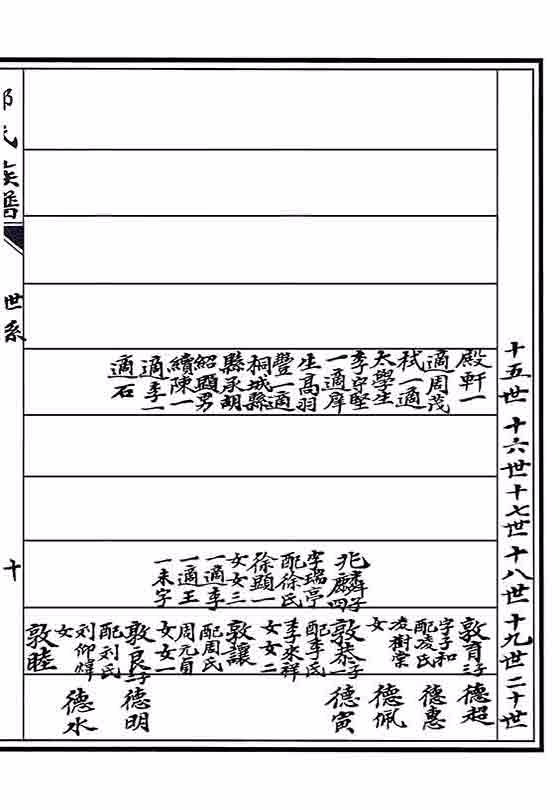 十五世
十六世
十七世
十八世
十九世
二十世
殿軒一
適周茂
栻一適
太學生
李守堅
一適庠
生高羽
豐一適
桐城縣
縣丞胡
紹顯男
續陳一
適李一
適石
兆麟子四
字瑞亭
配徐氏
徐顯一
女女三
一適李
一適王
一未字
敦育子三
字子和
配凌氏
凌樹棠
女
敦恭子一
配李氏
李來祥
女女二
敦讓
配周氏
周元貞
女女一
敦良子
配刘氏
刘仰煒
女
敦睦
德超
德惠
德佩
德寅
德明
德水
氏族譜
世系
十